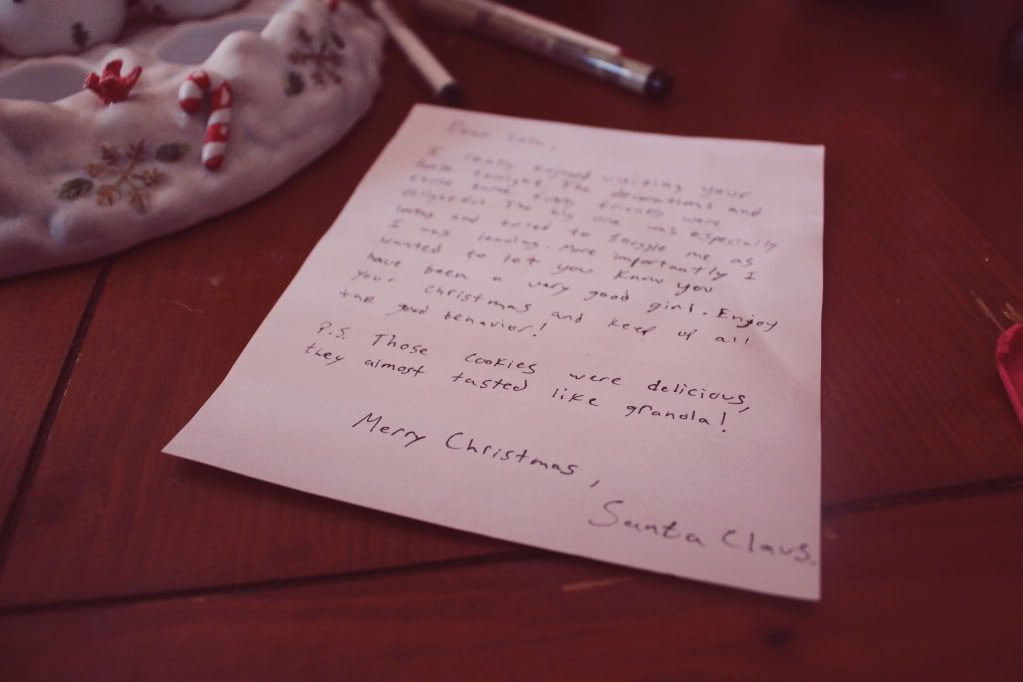 Dear
I really enjoyed visiting your
home tonight. The decorations and
those three furry friends were
delightful. The big one was especially
loving and tried to snuggle me as
I was leaving. More importantly I
wanted to let you know you
have been a very good girl. Enjoy
your Christmas and keep up all
the good behavior!
P.S. Those cookies were delicious,
they almost tasted like granola!
Merry Christmas,
Santa Claus.